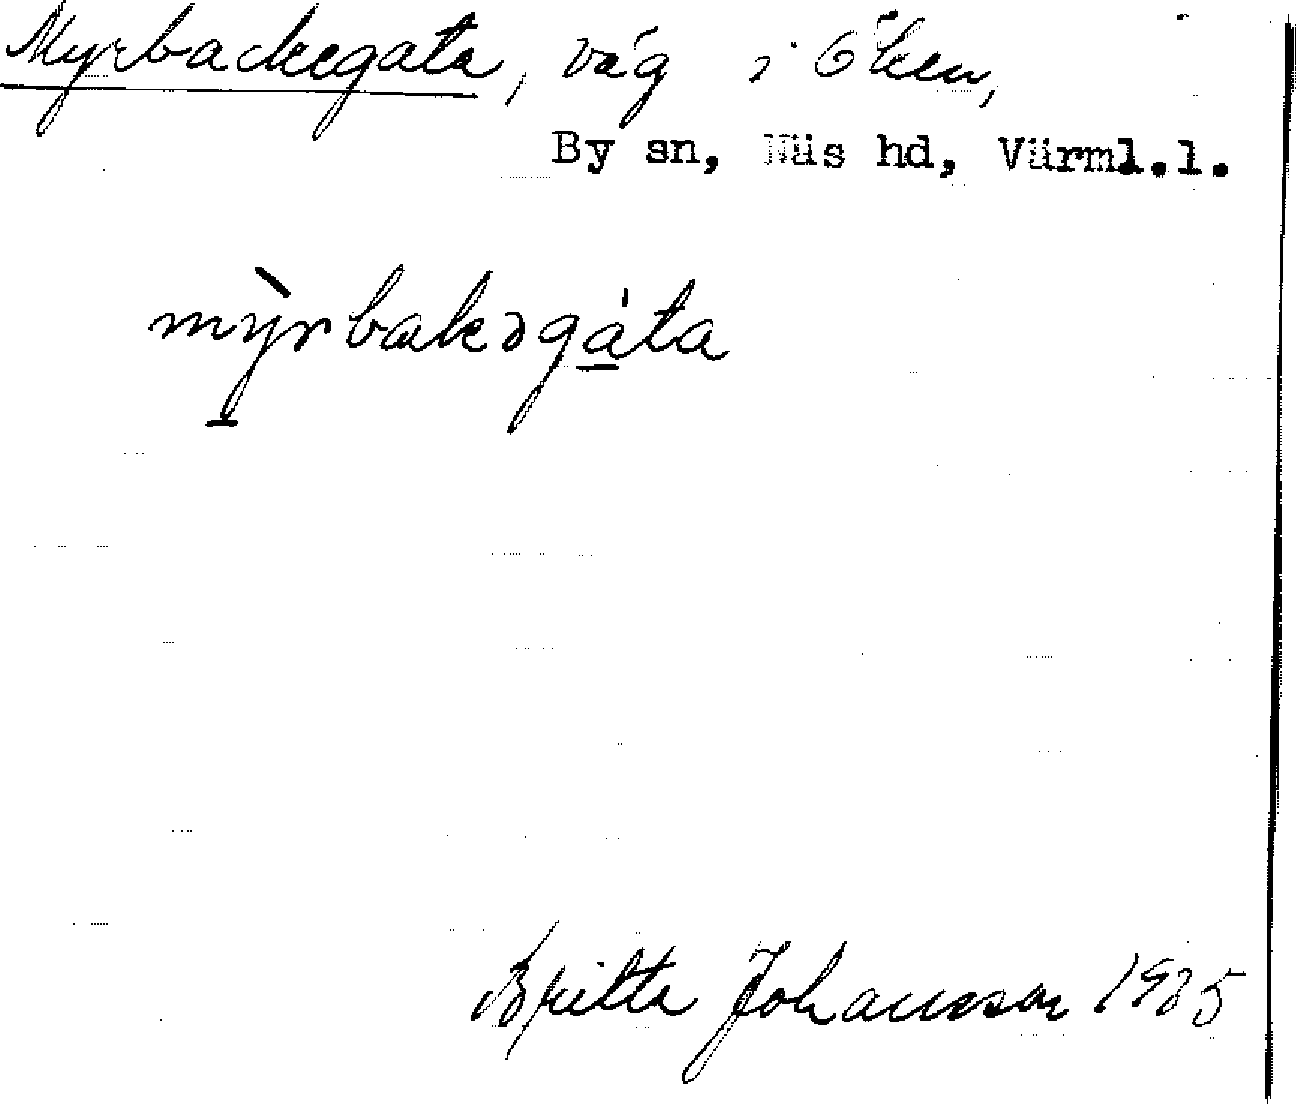 Myrbackegata, väg i Öken,
By sn, Näs hd, Värml.l.
mỳrbakəgáta
Britta Johansson 1925